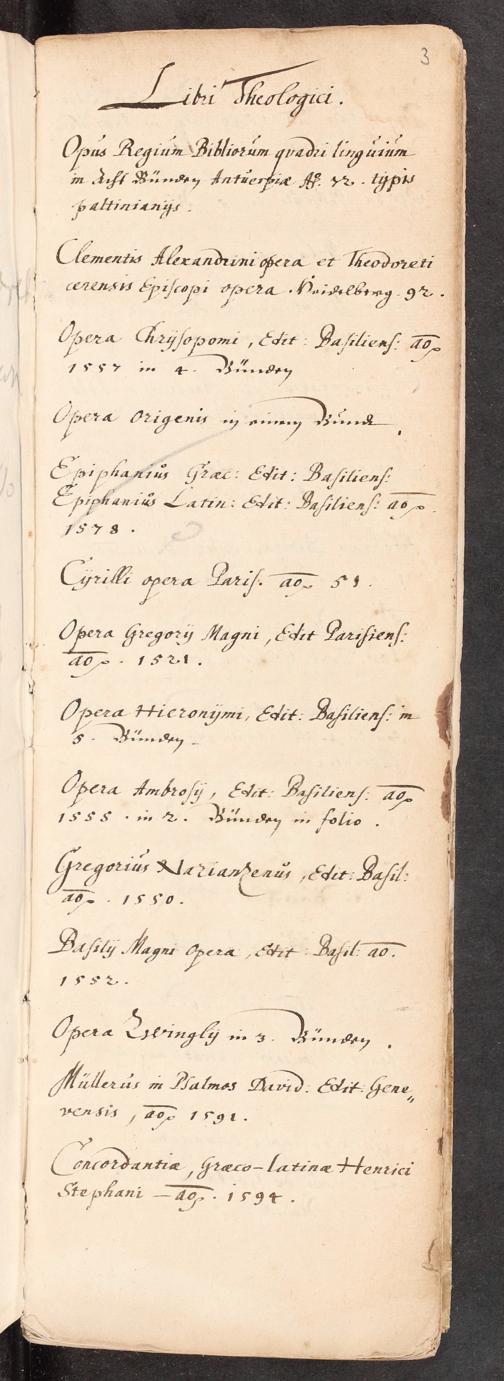 3
Libri Theologici.
Opus Regium Bibliorum quadri linguium
in Acht Bünden Antuerpiæ Aº. 72. typis
paltinianis.
Clementis Alexandrini opera et Theodoreti
cærensis Episcopi opera. Heidelberg. 92.
Opera Chrÿsopomi, Edit: Basiliens: aoͤ
1557 in 4. Bünden
Opera Origenis in einem Bundt.
Epiphanius Græc: Edit: Basiliens:
Epiphanius Latin: Edit: Basiliens: ao.
1578.
Cÿrilli opera Paris. ao. 51.
Opera Gregorÿ Magni, Edit Parisiens:
ao. 1521.
Opera Hieronÿmi, Edit: Basiliens: in
5. Bünden.
Opera Ambrosÿ, Edit: Basiliens: ao
1555. in 2. Bünden in folio.
Gregorius Nazianzenus, Edit: Basil:
ao. 1550.
Basilÿ Magni Opera, Edit Basil: ao.
1552.
Opera Zwinglÿ in 3. Bünden.
Müllerus in Psalmos David: Edit: Gene„
vensis, ao. 1591.
Concordantiæ, Græco-latinæ Henrici
Stephani – ao. 1594.